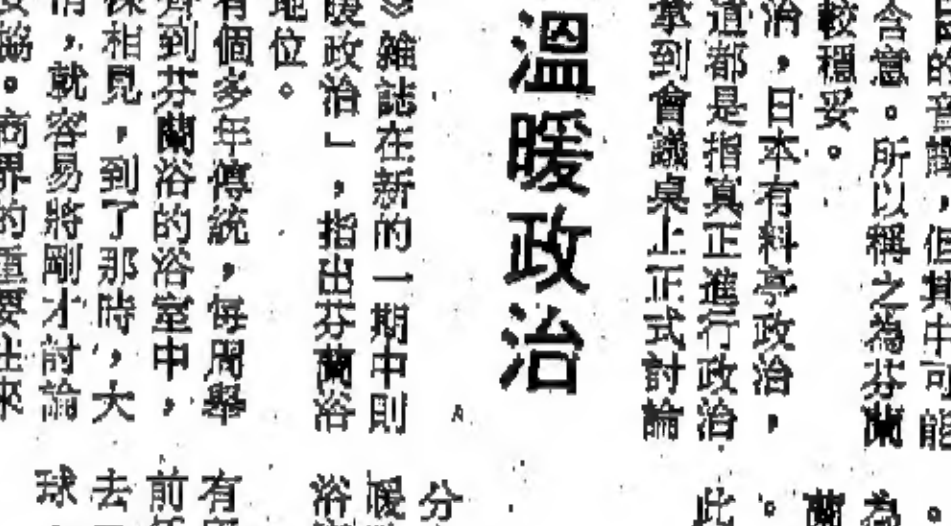 的音譯，但其中可能
含意。所以稱之為芬蘭
較穩妥。
治，日本有料亭政治，
道都是指真正進行政治
拿到會議桌上正式討論
溫暖政治
》雜誌在新的一期中則
暖政治」，指出芬蘭浴
地位。
有個多年傳統，每周舉
齊到芬蘭浴的浴室中，
相見，到了那時，大
情，就容易將剛才討論
妥協。商界的重要往來
。
為
蘭
。
此
分
暖
浴
有
前
去
球